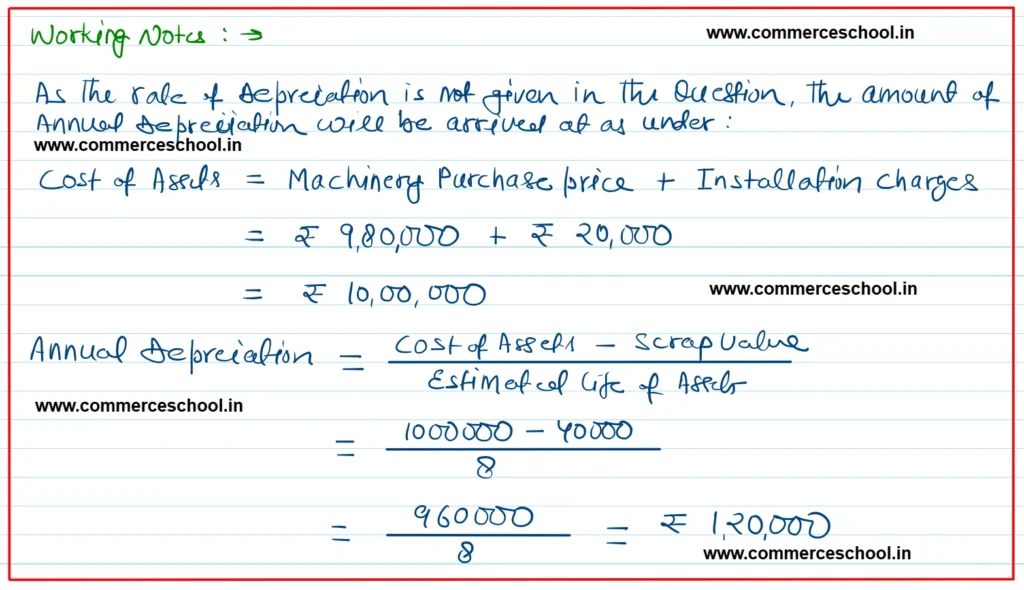 Working Notes : →
www.commerceschool.in
As the rate of Depreciation is not given in the Question, the amount of
Annual Depreciation will be arrived at as under :
www.commerceschool.in
Cost of Assets = Machinery Purchase price + Installation charges
= ₹ 9,80,000 + ₹ 20,000
= ₹ 10,00,000
www.commerceschool.in
Annual Depreciation = Cost of Assets - Scrap Value
Estimated life of Assets
www.commerceschool.in
= 1000000 - 40000
8
= 960000 = ₹ 1,20,000
8
www.commerceschool.in